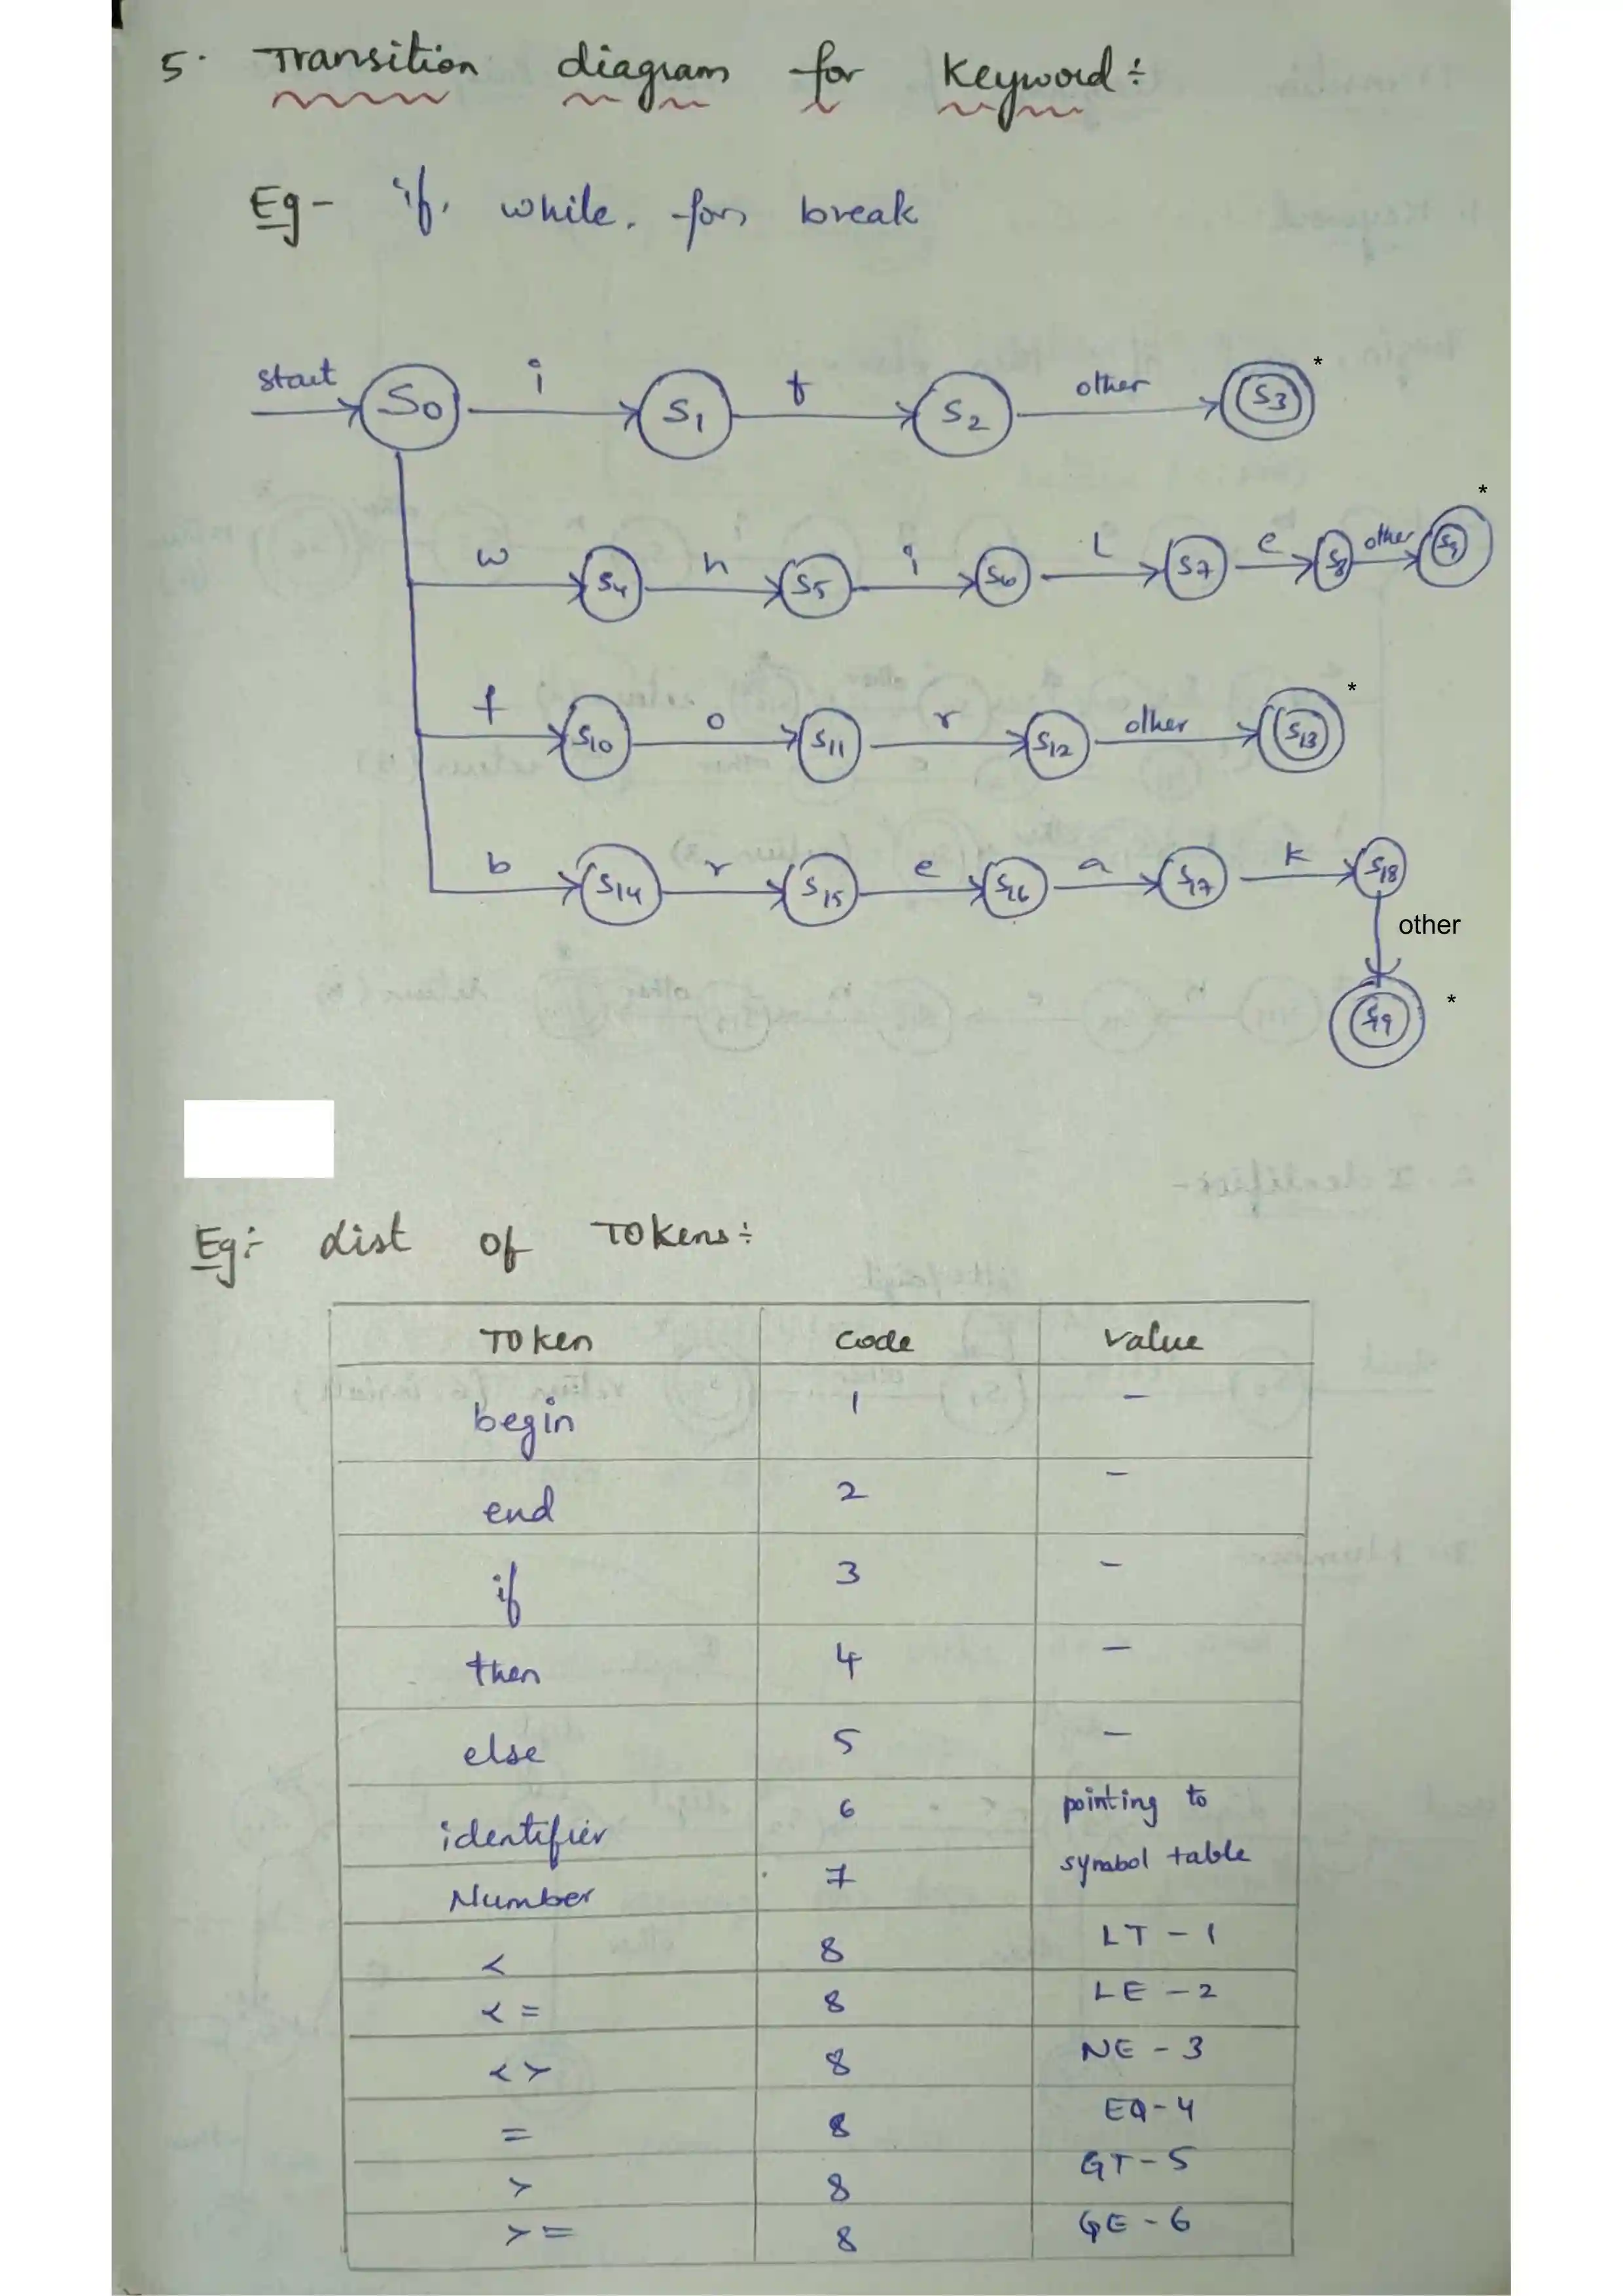 5. Transition diagram for Keyword ÷
Eg - if, while, for, break
start S0 i S1 f S2 other S3 *
w S4 h S5 i S6 l S7 e S8 other S9 *
f S10 o S11 r S12 other S13 *
b S14 r S15 e S16 a S17 k S18
other
S19 *
Eg:- List of Tokens ÷
Token Code Value
begin 1 -
end 2 -
if 3 -
then 4 -
else 5 -
identifier 6 pointing to
Number 7 symbol table
< 8 LT - 1
<= 8 LE - 2
<> 8 NE - 3
= 8 EQ - 4
> 8 GT - 5
>= 8 GE - 6